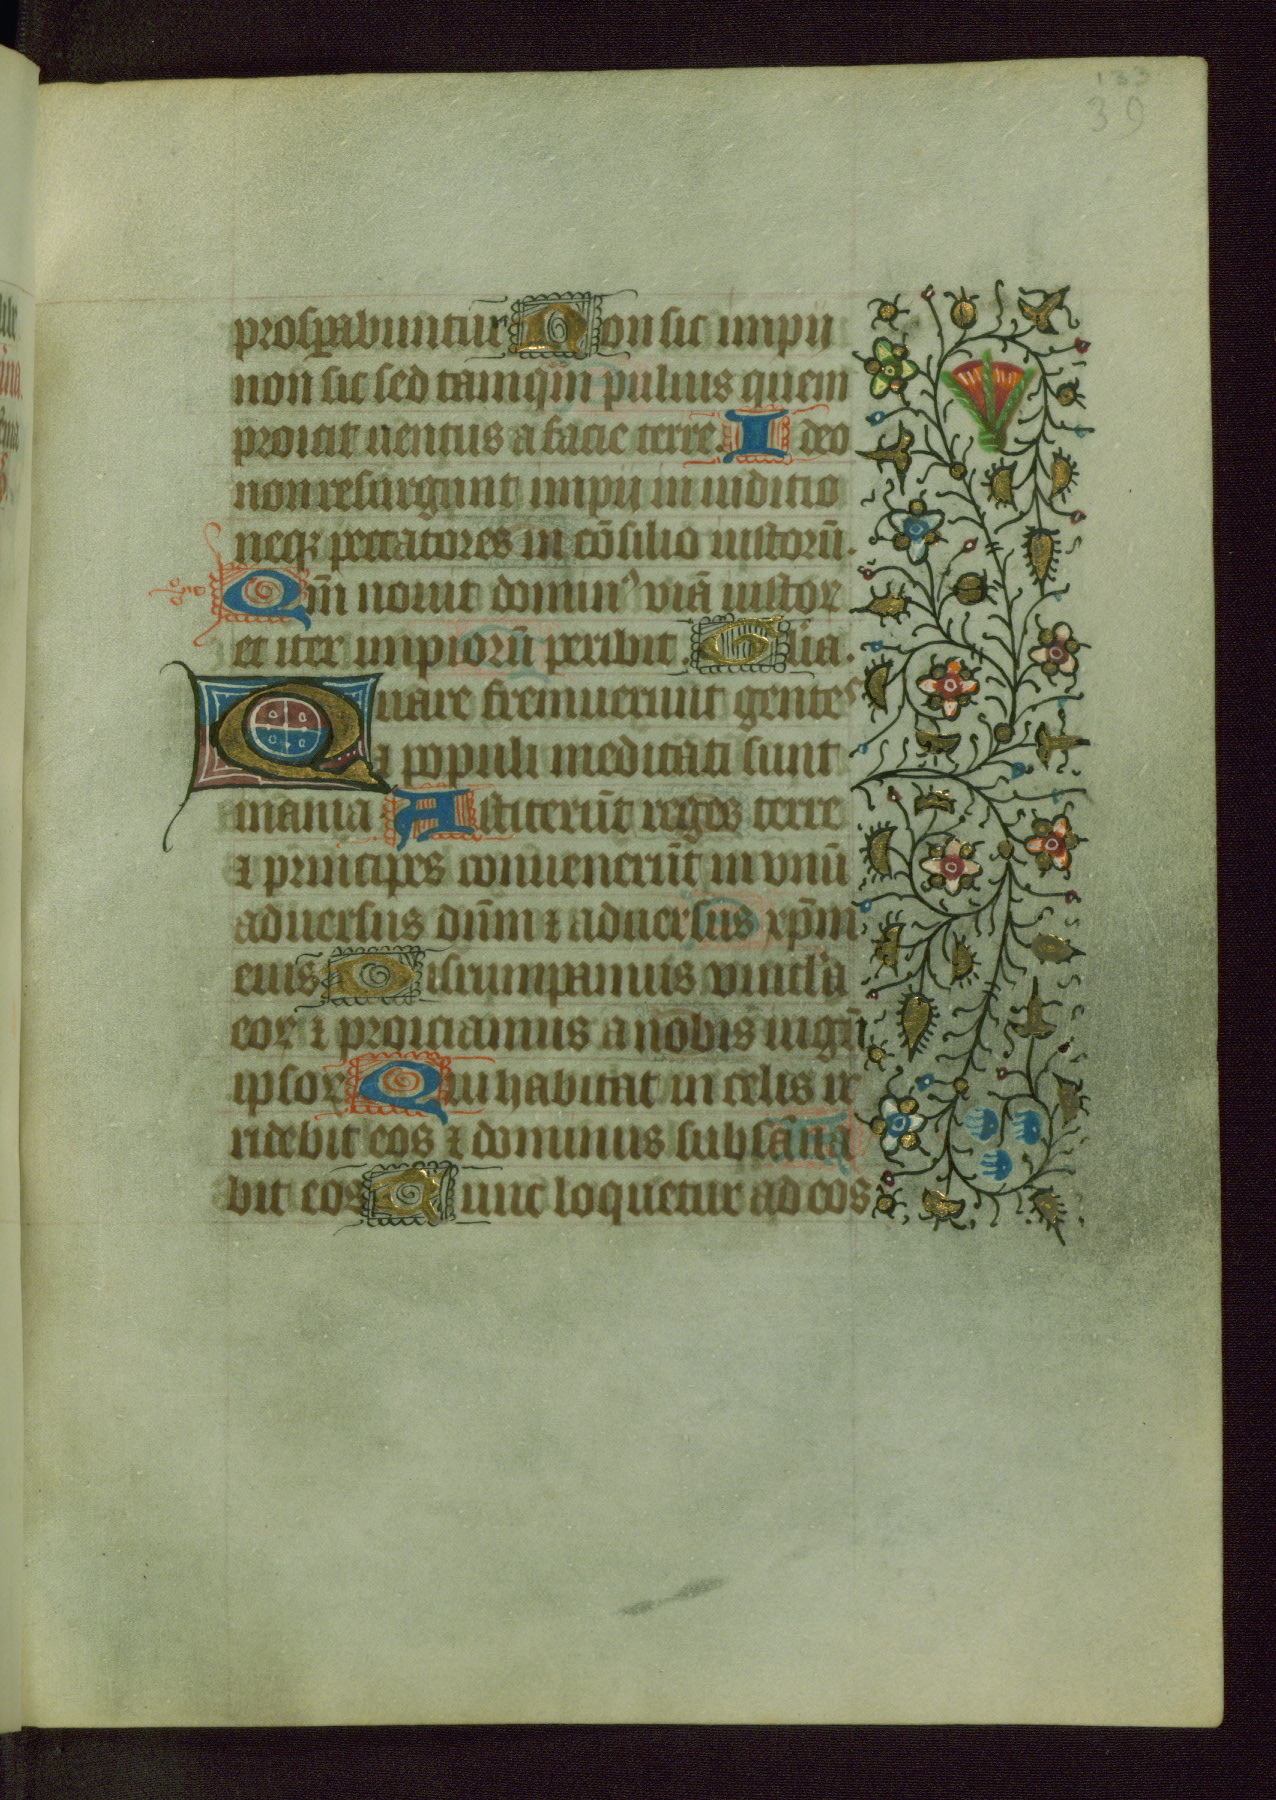 133
39
prosꝑabuntur Non sic impij
non sic sed tamq̄m puluis quem
proicit uentus a facie terre. Ideo
non resurgunt impij in iuditio
neqꝫ peccatores in cōsilio iustorū.
Qm̄ nouit domin⁹ viā iustoꝝ
et iter impiorū peribit. Glia.
Quare fremuerunt gentes
a populi meditati sunt
inania Astiterūt reges terre
⁊ principes conuenerūt in vnū
aduersus dūm ⁊ aduersus xp̄m
eius Disrumpamus vincl'a
eoꝝ ⁊ proiciamus a nobis iugū
ipsoꝝ Qui habitat in celis ir
ridebit eos ⁊ dominus subsāna
bit eos Tunc loquetur ad eos